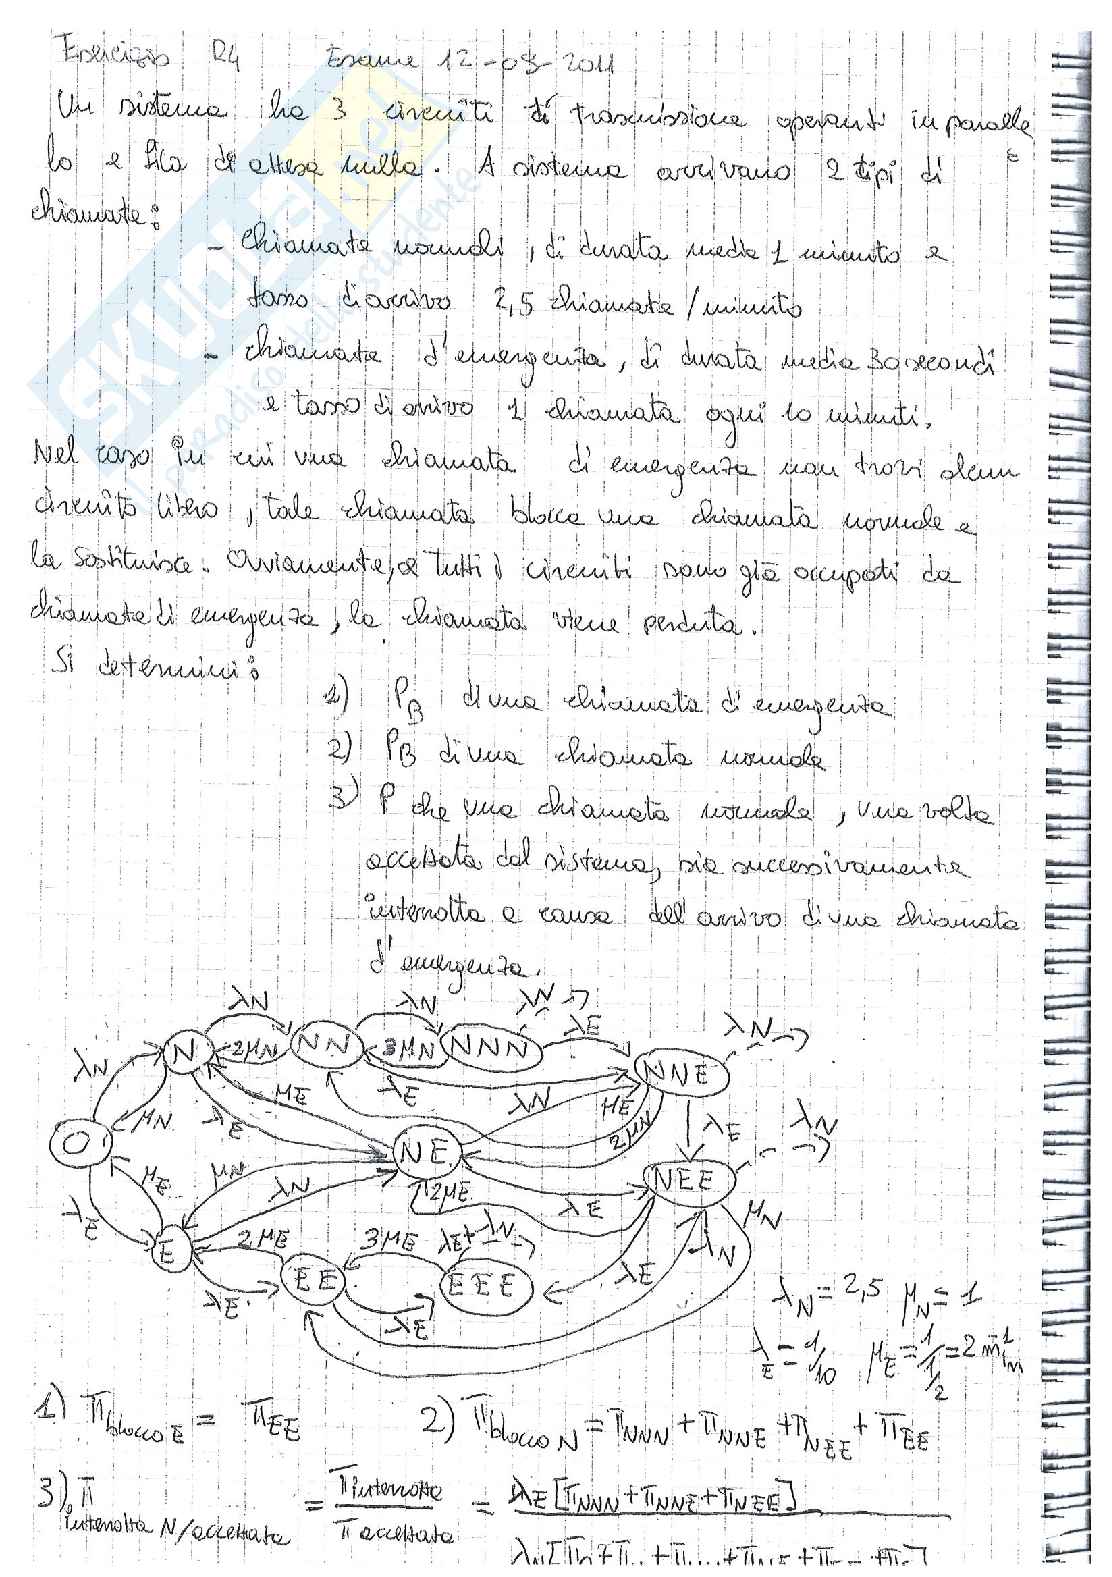 Esercizio R4 Esame 12-09-2011
Un sistema ha 3 circuiti di trasmissione operanti in paralle
lo e fila di attesa nulla. A sistema arrivano 2 tipi di
chiamate:
- chiamate normali, di durata media 1 minuto e
tasso di arrivo 2,5 chiamate/minuto
- chiamate d'emergenza, di durata media 30 secondi
e tasso di arrivo 1 chiamata ogni 10 minuti.
Nel caso in cui una chiamata di emergenza non trovi alcun
circuito libero, tale chiamata blocca una chiamata normale e
la sostituisce. Ovviamente, se tutti i circuiti sono già occupati da
chiamate di emergenza, la chiamata viene perduta.
Si determini:
1) P_B di una chiamata di emergenza
2) P_B di una chiamata normale
3) P che una chiamata normale, una volta
accettata dal sistema, sia successivamente
interrotta a causa dell'arrivo di una chiamata
d'emergenza.
λN λN λN
λE λN
λN N 2μN NN 3μN NNN NNE
μE λE λN μE
μN λE 2μN λE λN
O NE
μE μN λN 2μE λE NEE μN
λE E 2μE 3μE λE+λN λN
EE EEE λE
λE λE
λN = 2,5 μN = 1
λE = 1/10 μE = 1/1/2 = 2 min⁻¹
1) π blocco E = πEE 2) π blocco N = πNNN + πNNE + πNEE + πEE
3) π interrotta N/accettata = π interrotta / π accettata = λE [πNNN + πNNE + πNEE]